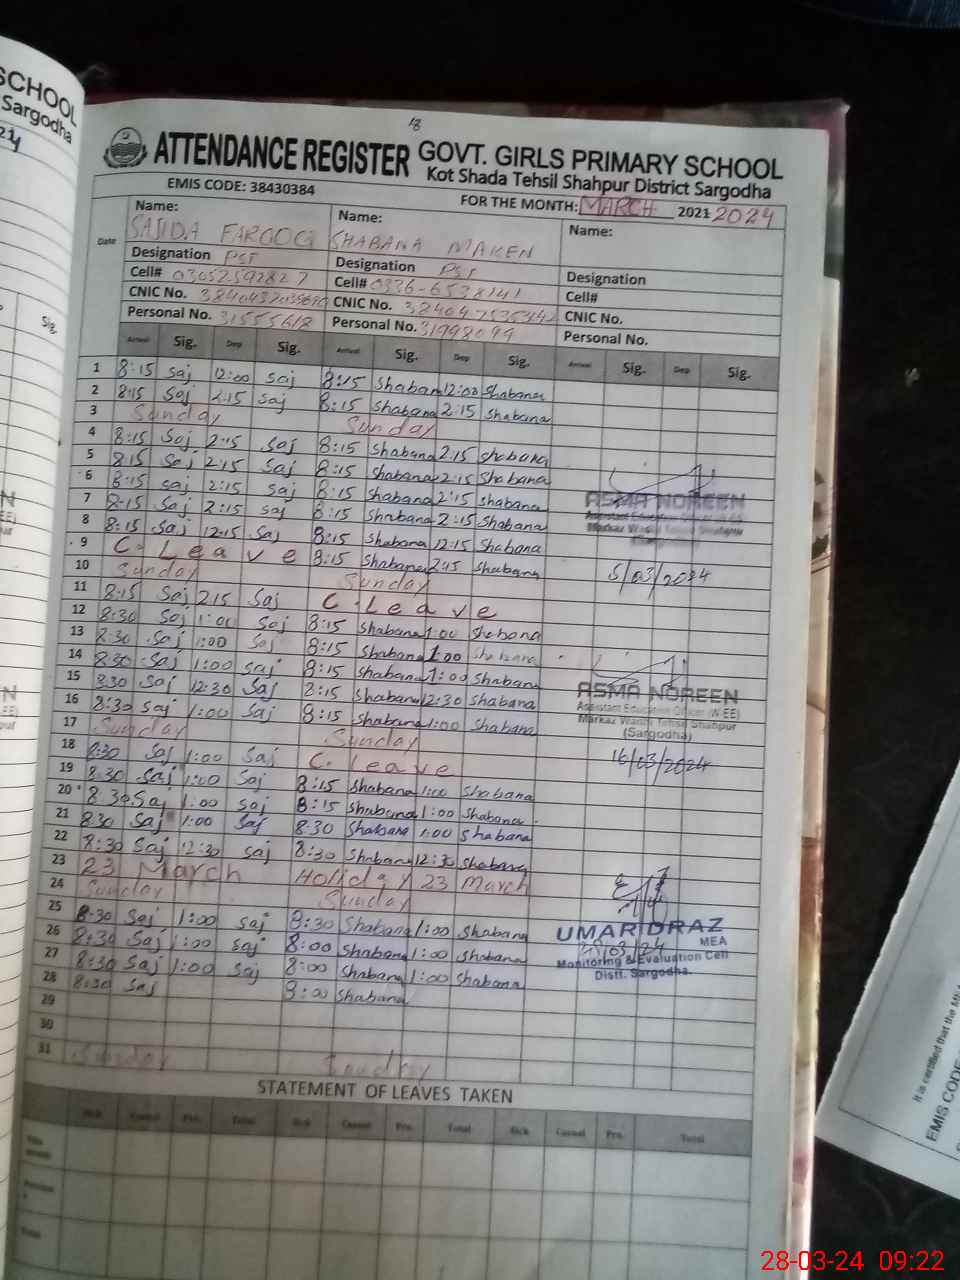 SCHOOL
Sargodha
18
ATTENDANCE REGISTER GOVT. GIRLS PRIMARY SCHOOL
Kot Shada Tehsil Shahpur District Sargodha
EMIS CODE: 38430384
FOR THE MONTH: MARCH 2021 2024
Date Name: Name: Name:
SAJIDA FAROOG SHABANA MAKEN
Designation PST Designation PST Designation
Cell# 03052592827 Cell# 0336-6538141 Cell#
CNIC No. CNIC No. CNIC No.
Personal No. 31555618 Personal No. 31998094 Personal No.
Arrival Sig. Dep Sig. Arrival Sig. Dep Sig. Arrival Sig. Dep Sig.
1 8:15 Saj 12:00 Saj 8:15 Shabana 12:00 Shabana
2 8:15 Saj 2:15 Saj 8:15 Shabana 2:15 Shabana
3 Sunday Sunday
4 8:15 Saj 2:15 Saj 8:15 Shabana 2:15 Shabana
5 8:15 Saj 2:15 Saj 8:15 Shabana 2:15 Shabana
6 8:15 Saj 2:15 Saj 8:15 Shabana 2:15 Shabana
7 8:15 Saj 2:15 Saj 8:15 Shabana 2:15 Shabana
8 8:15 Saj 12:15 Saj 8:15 Shabana 12:15 Shabana
9 C. Leave 8:15 Shabana 2:15 Shabana
10 Sunday Sunday
11 8:15 Saj 2:15 Saj C. Leave
12 8:30 Saj 1:00 Saj 8:15 Shabana 1:00 Shabana
13 8:30 Saj 1:00 Saj 8:15 Shabana 1:00 Shabana
14 8:30 Saj 1:00 Saj 8:15 Shabana 1:00 Shabana
15 8:30 Saj 12:30 Saj 8:15 Shabana 12:30 Shabana
16 8:30 Saj 1:00 Saj 8:15 Shabana 1:00 Shabana
17 Sunday Sunday
18 8:30 Saj 1:00 Saj C. Leave
19 8:30 Saj 1:00 Saj 8:15 Shabana 1:00 Shabana
20 8:30 Saj 1:00 Saj 8:15 Shabana 1:00 Shabana
21 8:30 Saj 1:00 Saj 8:30 Shabana 1:00 Shabana
22 8:30 Saj 12:30 Saj 8:30 Shabana 12:30 Shabana
23 23 March Holiday 23 March
24 Sunday Sunday
25 8:30 Saj 1:00 Saj 8:30 Shabana 1:00 Shabana
26 8:30 Saj 1:00 Saj 8:00 Shabana 1:00 Shabana
27 8:30 Saj 1:00 Saj 8:00 Shabana 1:00 Shabana
28 8:30 Saj 8:00 Shabana
29
30
31 Sunday Sunday
ASMA NOREEN
5/03/2024
ASMA NOREEN
Assistant Education Officer (W-EE)
Markaz Wadhi Tehsil Shahpur
(Sargodha)
16/03/2024
UMAR DRAZ
MEA
Monitoring & Evaluation Cell
Distt. Sargodha.
STATEMENT OF LEAVES TAKEN
Sick Casual Pri. Total Sick Casual Pri. Total Sick Casual Pri. Total
Total
Sig.
It is certified that the
EMIS CODE
28-03-24 09:22